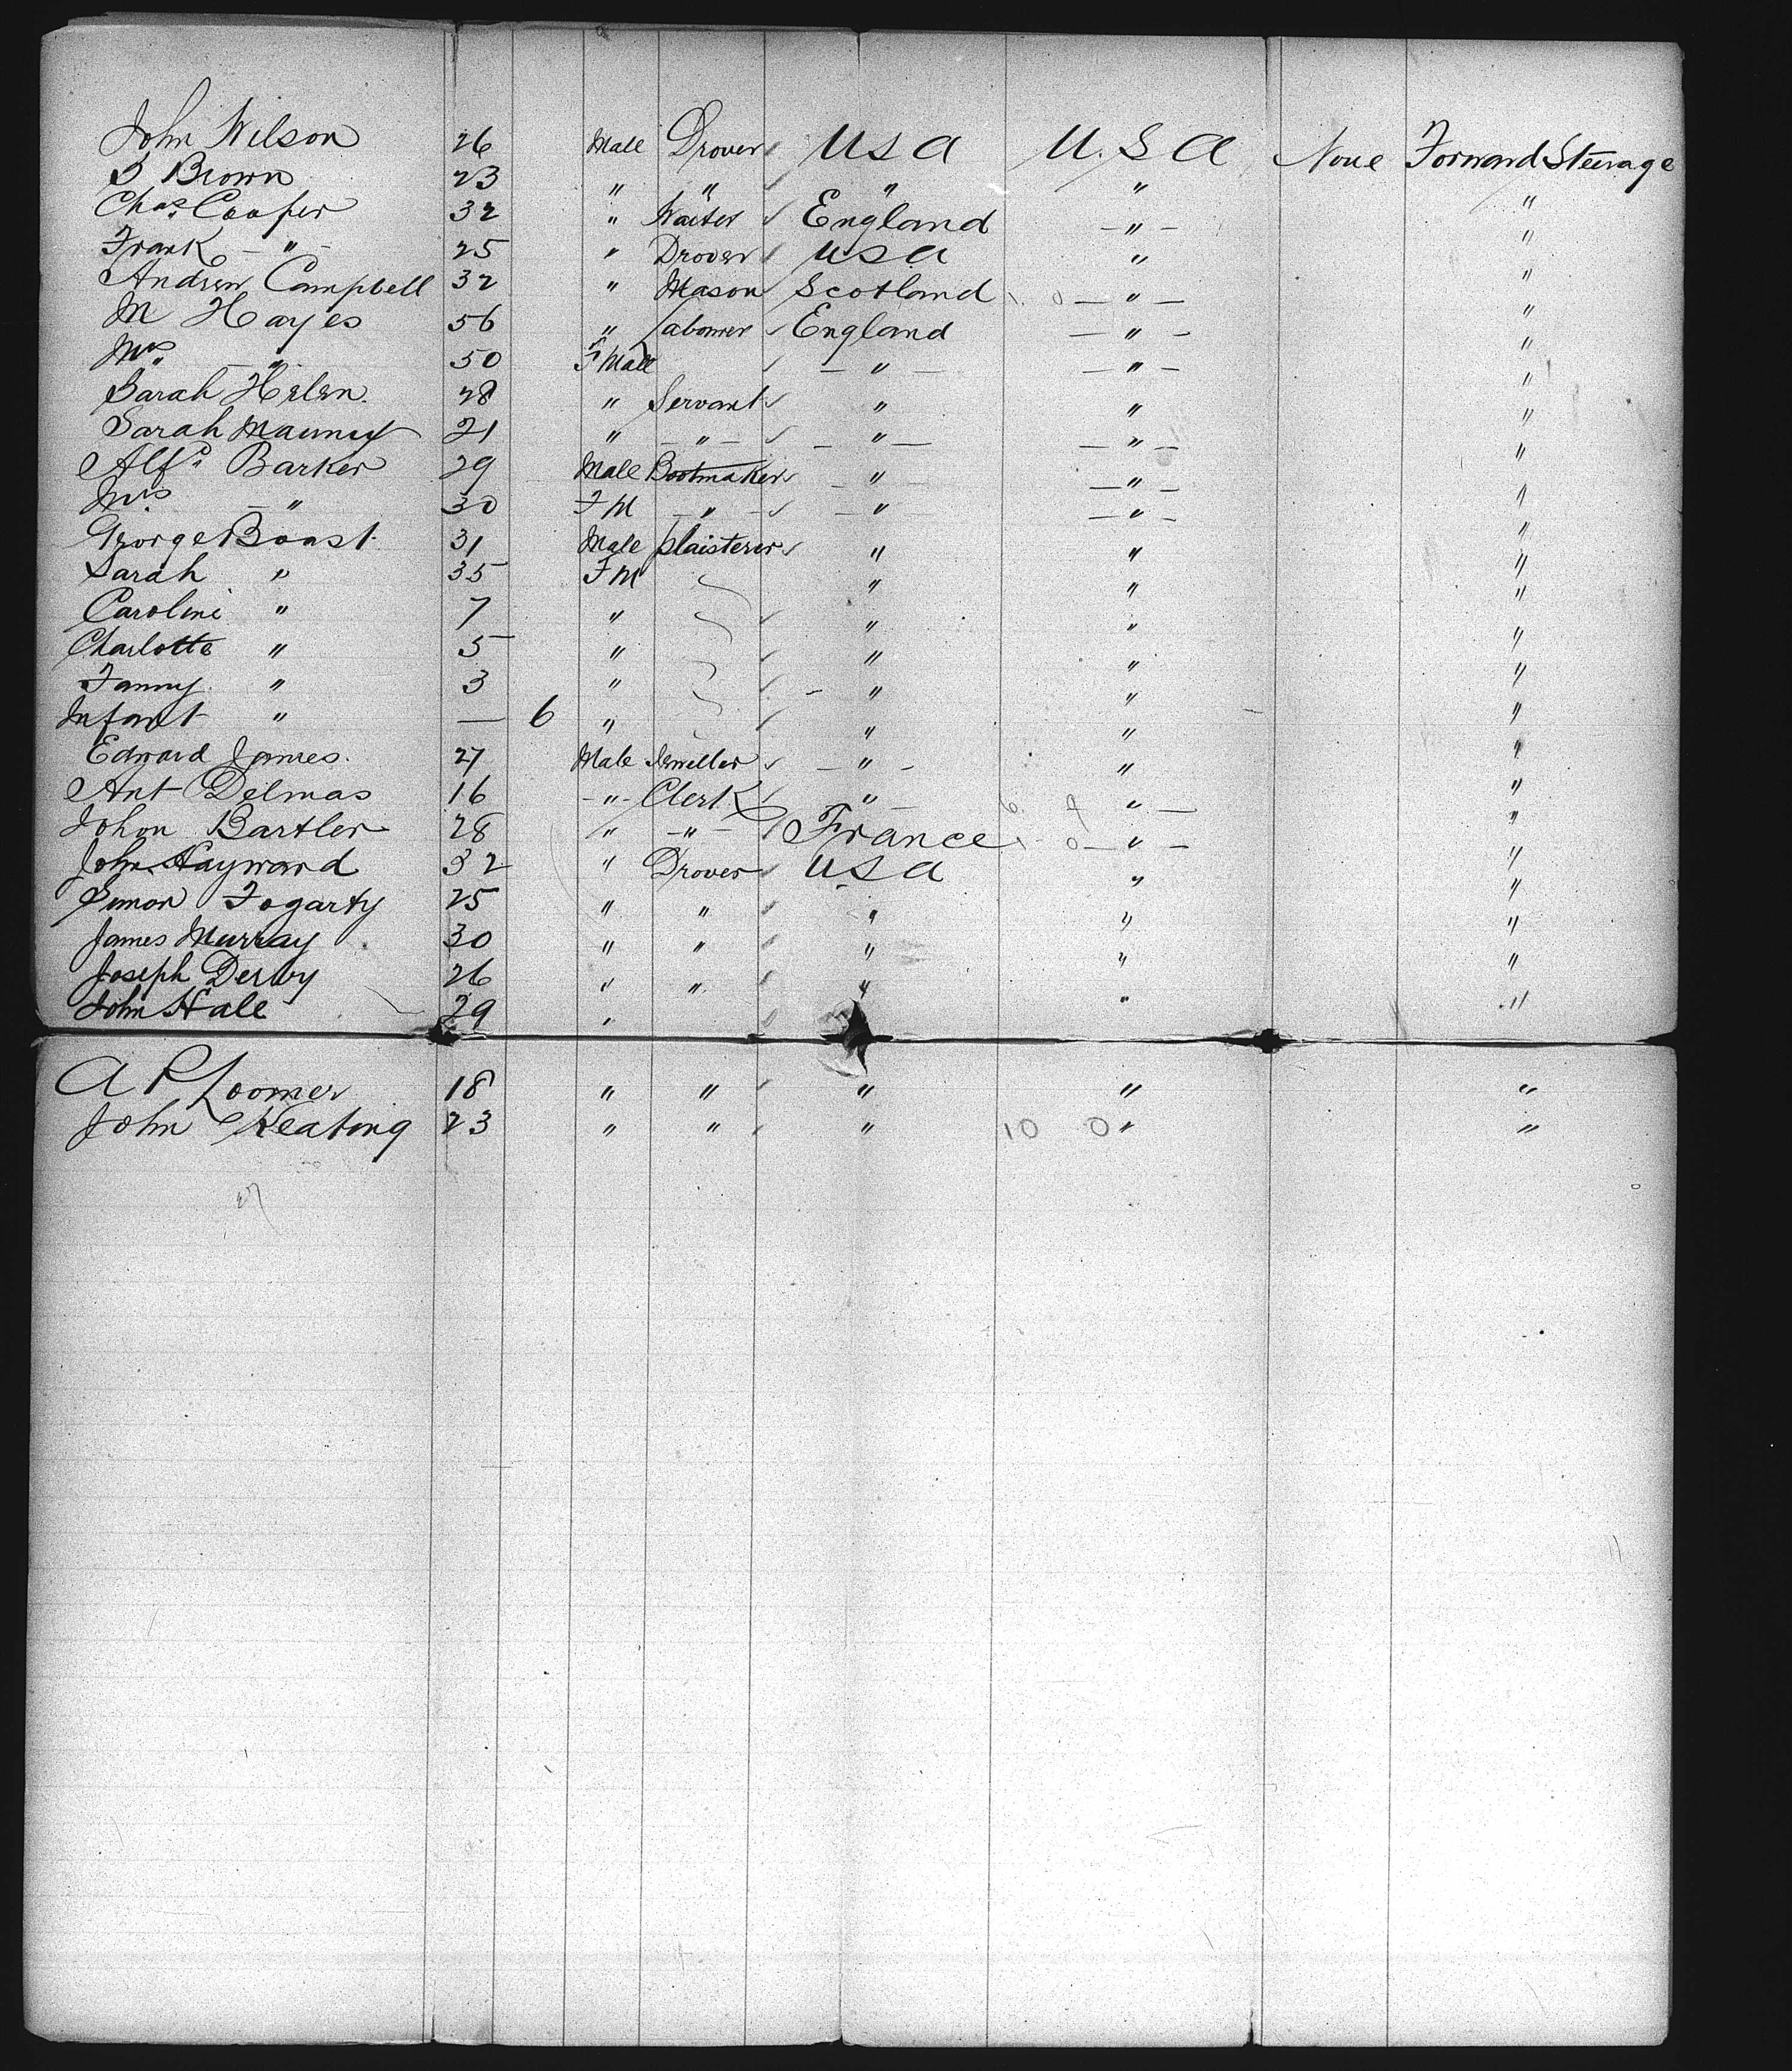 John Wilson 26 Male Drover USA U.S.A None Forward Steerage
B Brown 23 " " " " "
Chas. Cooper 32 " Waiter England — " — "
Frank — " — 25 " Drover USA " "
Andrew Campbell 32 " Mason Scotland — " — "
M Hayes 56 " Labourer England — " — "
Mrs — " 50 F Male — " — — " — "
Sarah Helen 28 " Servant " " "
Sarah 21 " — " — — " — — " — "
Alfd. Barker 29 Male Bootmaker — " — — " — "
Mrs — " 30 FM — " — — " — — " — "
George Boast 31 Male plaisterer " " "
Sarah " 35 FM " " "
Caroline " 7 " " " "
Charlotte " 5 " " " "
Fanny " 3 " " " "
Infant " — 6 " " " "
Edward James 27 Male Jeweller — " — " "
Ant Delmas 16 — " — Clerk " — " — "
Johon Bartler 28 " — " — France — " — "
John Hayward 32 " Drover USA " "
Simon Fogarty 25 " " " " "
James Murray 30 " " " " "
Joseph Derby 26 " " " " "
John Hale 29 " " "
A P Loomer 18 " " " " "
John Keating 23 " " " 10 0 " "